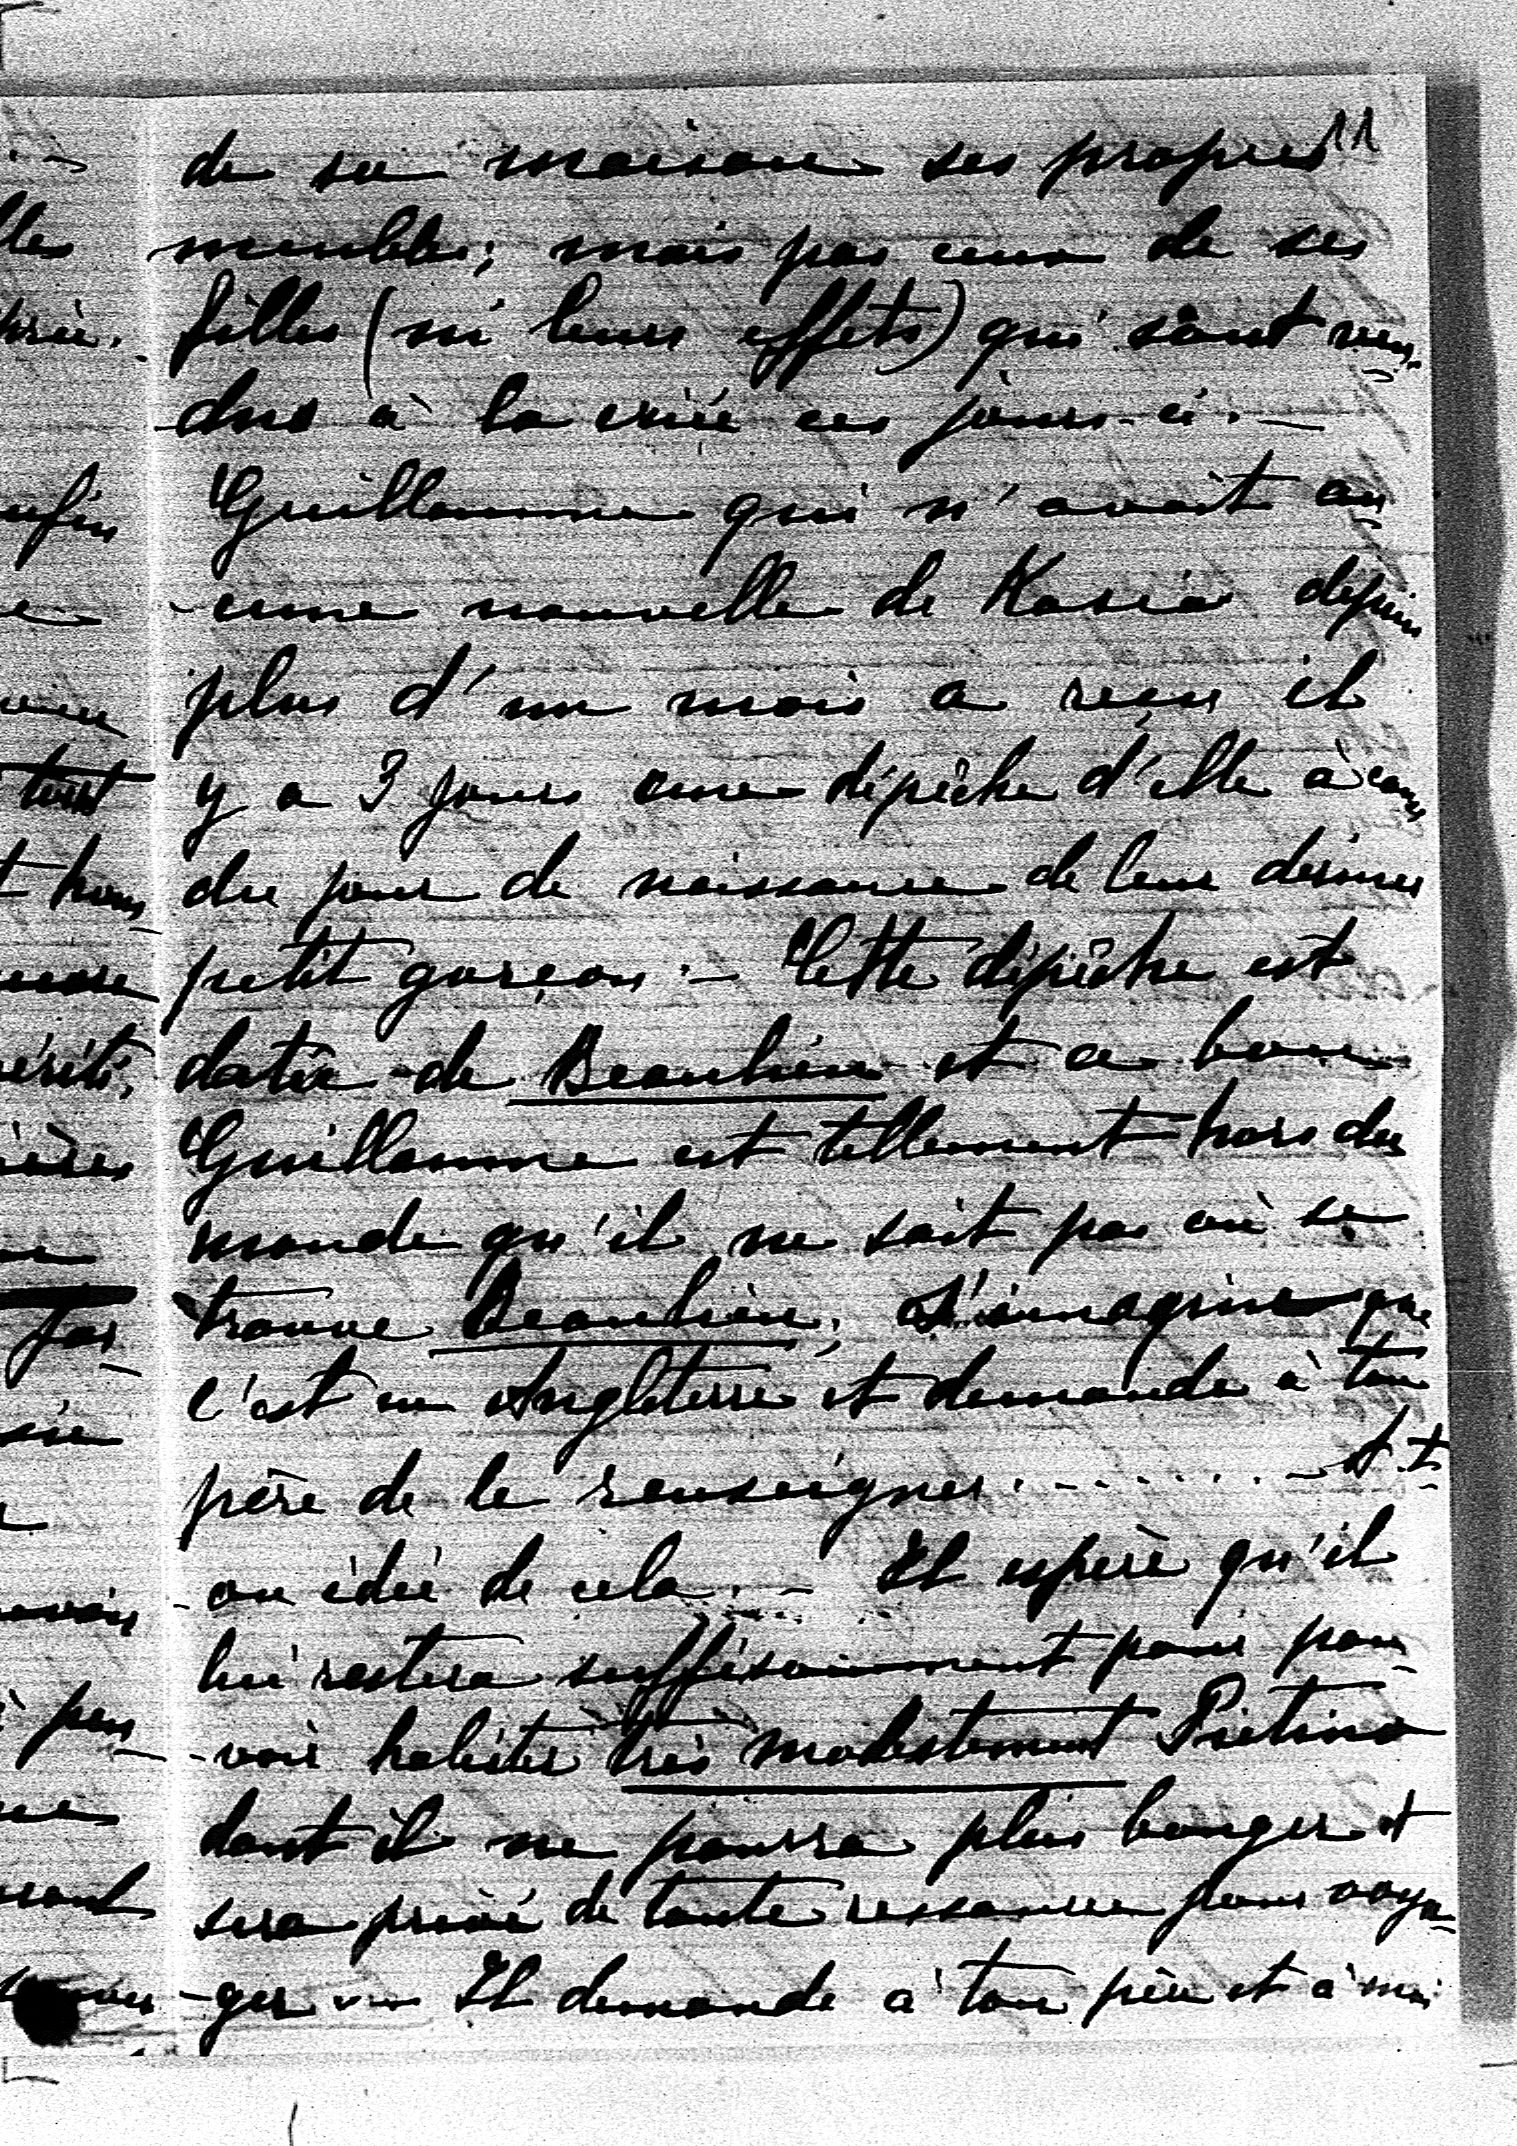 11
de sa maison ses propres
meubles; mais pas ceux de ses
filles (ni leurs effets) qui sont ven-
dus à la criée ces jours-ci. —
Guillaume qui n'avait au-
-cune nouvelle de Kasia depuis
plus d'un mois a reçu il
y a 3 jours une dépêche d'elle à cause
du jour de naissance de leur dernier
petit garçon. — Cette dépêche est
datée de Beaulieu et ce bon
Guillaume est tellement hors du
monde qu'il ne sait pas où se
trouve Beaulieu, s'imagine que
c'est en Angleterre et demande à ton
père de le renseigner ........ - A-t-
on idée de cela. — Il espère qu'il
lui restera suffisamment pour pou-
-voir habiter très modestement Pietino
dont il ne pourra plus bouger et
sera privé de toute ressource pour voya-
-ger ... Il demande à ton père et à moi